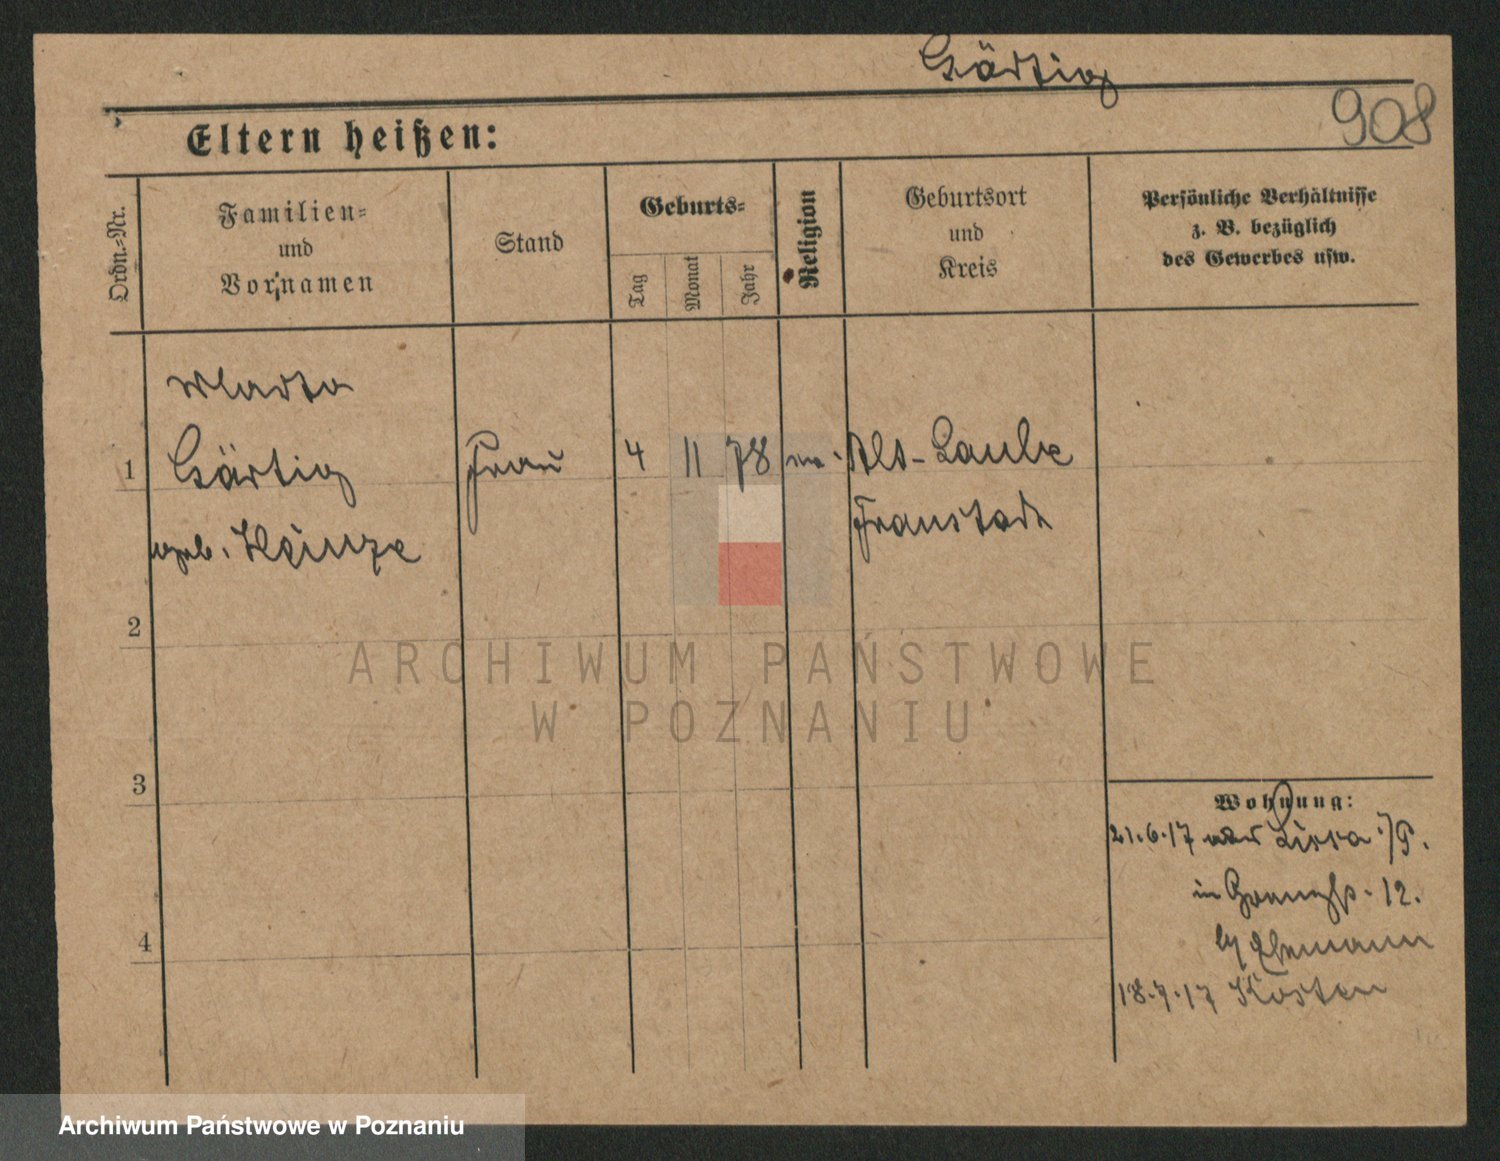 Gärtig
908
Eltern heißen:
Ordn.-Nr.
Familien-
und
Vornamen
Stand
Geburts-
Tag
Monat
Jahr
Religion
Geburtsort
und
Kreis
Persönliche Verhältnisse
z. B. bezüglich
des Gewerbes usw.
Marta
1 Gärtig Frau 4 11 78 Alt-Laube
geb. Heinze Fraustadt
2
ARCHIWUM PAŃSTWOWE
W POZNANIU
3
Wohnung:
21.6.17 Lissa i/P.
in 12.
4 Ehemann
18.7.17 Kosten
Archiwum Państwowe w Poznaniu